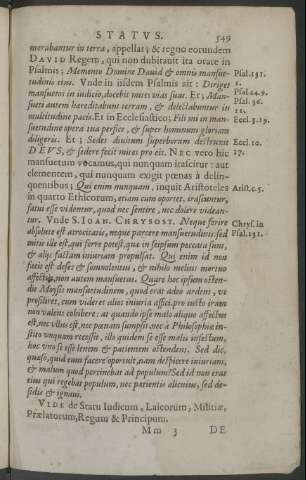 STATVS. 549
morabantur in terra, appellat; & regno eorundem
DAVID Regem, qui non dubitauit ita orare in
Psalmis; Memento Domine Dauid & omnis mansue- Psal.131.
tudinis eius. Vnde in iisdem Psalmis ait: Diriget 1.
mansuetos in iudicio, docebit mites vias suas. Et; Man- Psal.24.9.
sueti autem hæreditabunt terram, & delectabuntur in Psal. 36.
multitudine pacis. Et in Ecclesiastico; Fili mi in man- 11.
suetudine opera tua perfice, & super hominum gloriam Eccl.3.19.
diligeris. Et; Sedes ducum superborum destruxit Eccl.10.
DEVS, & sedere fecit mites pro eis. NEC vero hic 17.
mansuetum vocamus, qui nunquam irascitur: aut
clementem, qui nunquam exigit pœnas à delin-
quentibus; Qui enim nunquam, inquit Aristoteles Arist.c.5.
in quarto Ethicorum, etiam cum oportet, irascuntur,
fatui esse videntur, quod nec sentire, nec dolere videan-
tur. Vnde S. IOAN. CHRYSOST. Neque ferire Chrys. in
absolute est atrocitatis, neque parcere mansuetudinis: sed Psal.131.
mitis ille est, qui ferre potest, quæ in seipsum peccata sunt,
& aliis factam iniuriam propulsat. Qui enim id non
facit est deses & somnolentus, & nihilo melius mortuo
affectus, non autem mansuetus. Quare hoc ipsum osten-
dit Moysis mansuetudinem, quod erat adeo ardens, vt
prosiliret, cum videret alios iniuria affici, pro iusto iram
non valens cohibere: at quando ipse malo aliquo affectus
est, nec vltus est, nec pœnam sumpsit, nec à Philosophia in-
stituto vnquam recessit, illo quidem se esse malis infestum,
hoc vero se esse lenem & patientem ostendens. Sed dic,
quæso, quid eum facere oportuit, nam despicere iniuriam,
& malum quod pertinebat ad populum? Sed id non erat
eius qui regebat populum, nec patientis alienius, sed de-
sidis & ignaui.
VIDE de Statu Iudicum, Laicorum, Militiæ,
Prælatorum, Regum & Principum.
Mm 3 DE